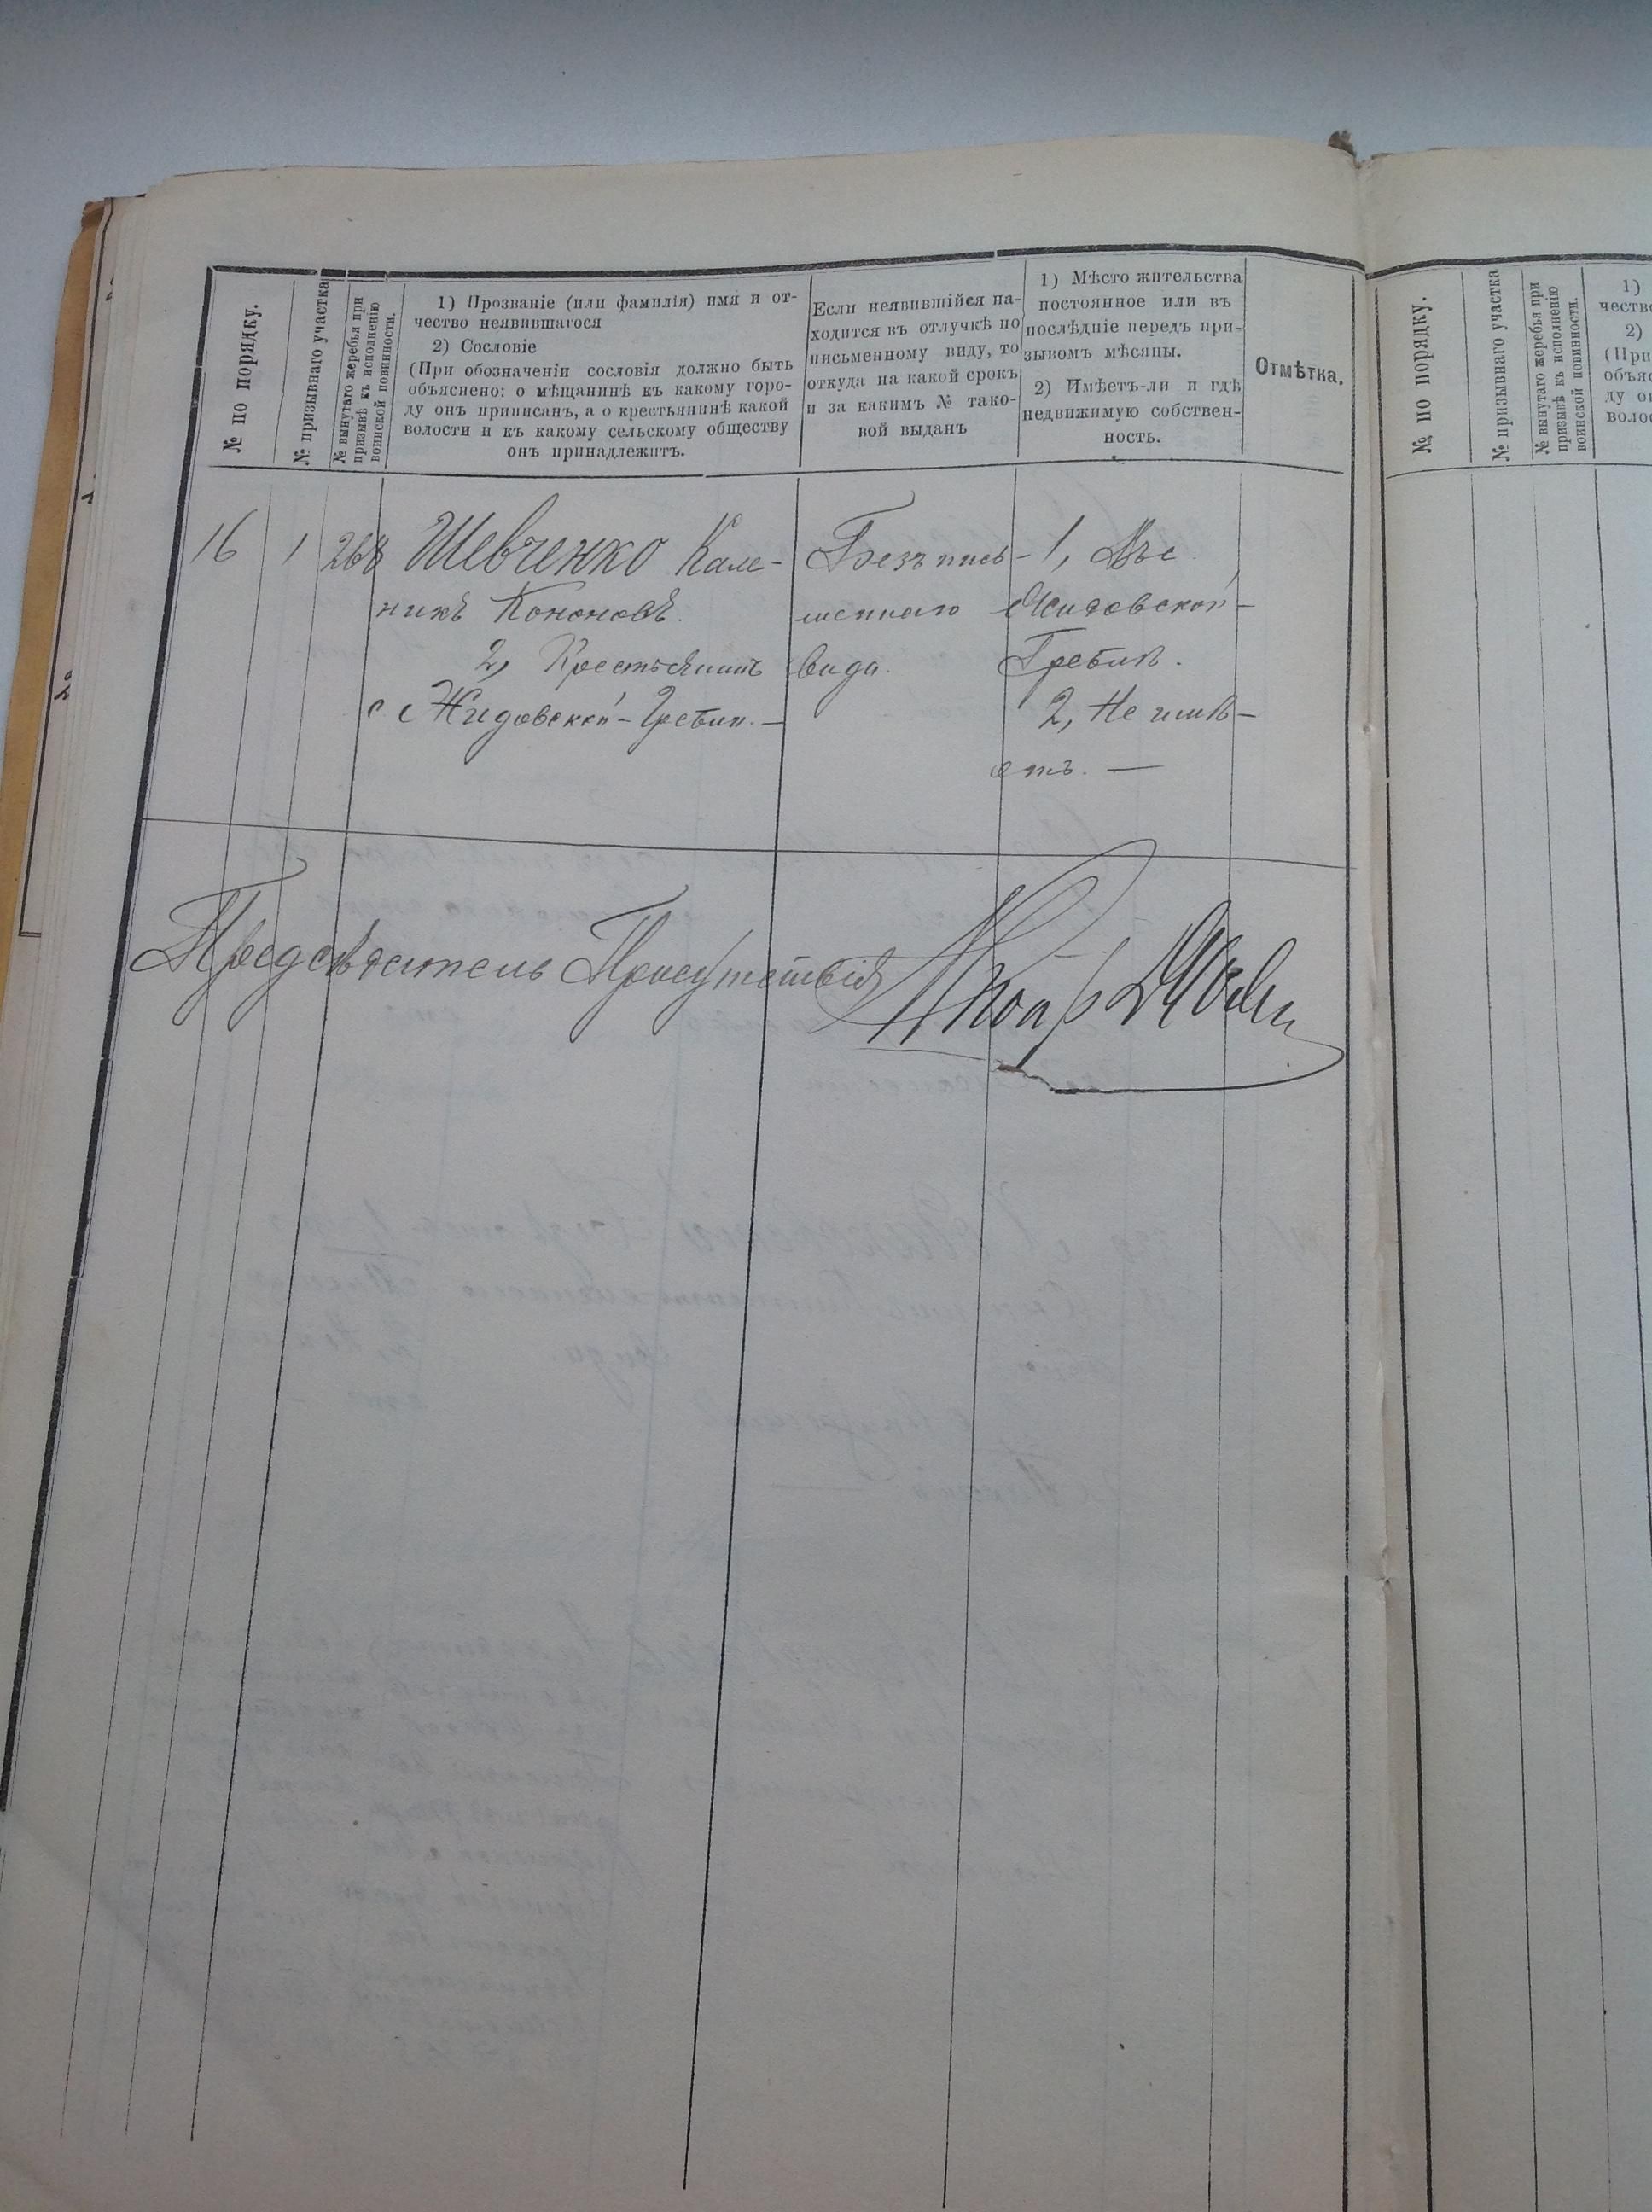 № по порядку.
№ призывнаго участка
№ вынутаго жеребья при
призывѣ къ исполненію
воинской повинности.
1) Прозваніе (или фамилія) имя и от-
чество неявившагося
2) Сословіе
(При обозначеніи сословія должно быть
объяснено: о мѣщанинѣ къ какому горо-
ду онъ приписанъ, а о крестьянинѣ какой
волости и къ какому сельскому обществу
онъ принадлежитъ.
Если неявившійся на-
ходится въ отлучкѣ по
письменному виду, то
откуда на какой срокъ
и за какимъ № тако-
вой выданъ
1) Мѣсто жительства
постоянное или въ
послѣдніе передъ при-
зывомъ мѣсяцы.
2) Имѣетъ-ли и гдѣ
недвижимую собствен-
ность.
Отмѣтка.
16
1
268
Шевченко Кале-
никъ Кононовъ.
2, Крестьянинъ
с Жидовской-Гребли. —
Безъ пись-
меннаго
вида.
1, Въ с.
Жидовской-
Греблѣ.
2, Не имѣ-
етъ. —
Предсѣдатель Присутствія
№ по порядку.
№ призывнаго участка
№ вынутаго жеребья при
призывѣ къ исполненію
воинской повинности.
1)
чество
2)
(При
объяс
ду он
волос